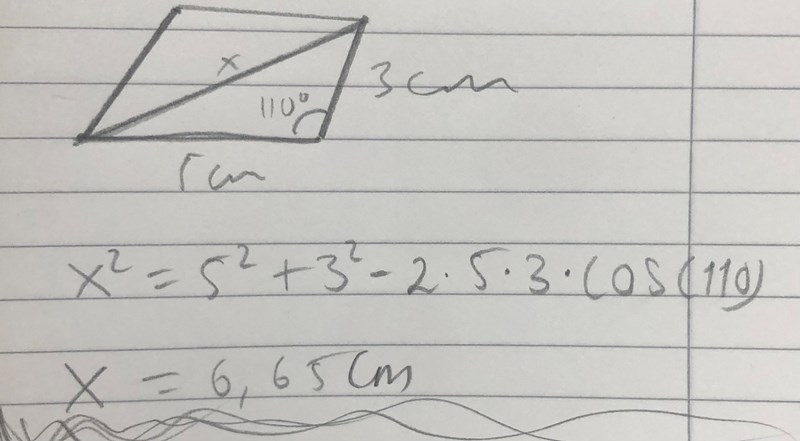 x
3 cm
110°
5 cm
x² = 5² + 3² - 2 · 5 · 3 · cos(110)
x = 6,65 cm